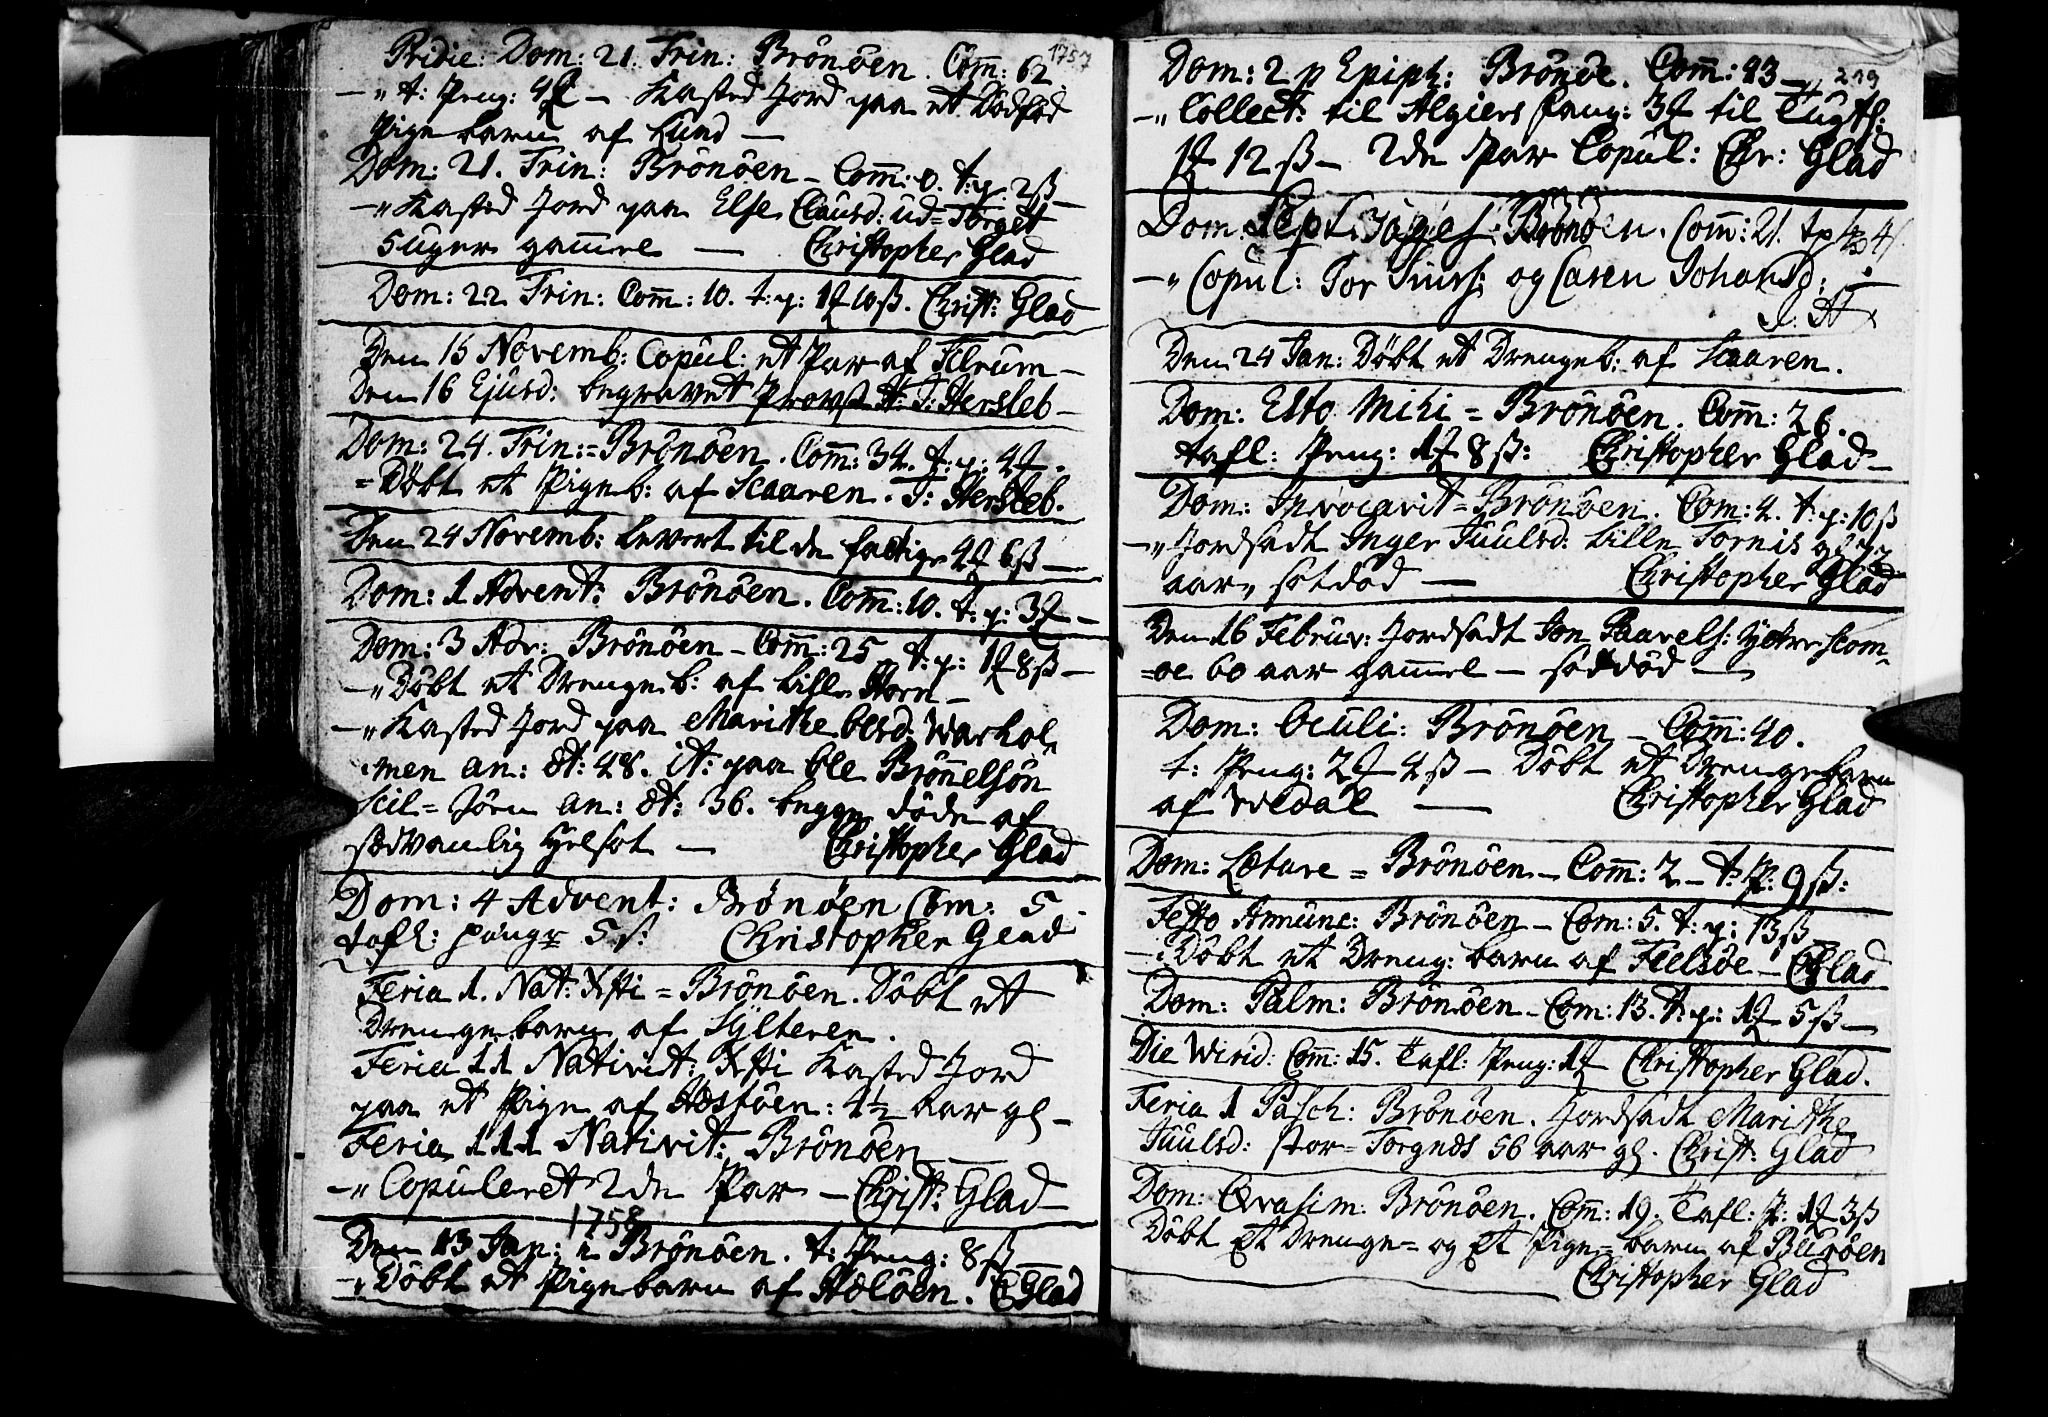 1757
Pridie: Dom: 21. Trin: Brönöen. Com̅: 62
–„ t: Peng: 4 – Kasted Jord paa et Dödfød
Pigebarn af Lund –
Dom: 21. Trin: Brönöen – Com̅: 0. t: p: 2ß
–„ Kasted Jord paa Else Clausd: ud= Torget
5 uger gam̅el – Christopher Glad
Dom: 22 Trin: Com̅: 10. t: p: 1 10ß. Christ: Glad
Den 15 Novemb: Copul: et Par af
Den 16 Ejusd: begravet Provst H: J: Hersleb –
Dom: 24. Trin: = Brönöen. Com̅: 34. t: p: 4 .
= Döbt et Pigeb: af Scaaren. J: Hersleb.
Den 24 Novemb: levert til de fattige 4 6ß –
Dom: 1 Advent: Brönöen. Com̅: 10. t: p: 3 –
Dom: 3 Adv: Brönöen – Com̅: 25 t: p: 1 8ß –
–„ Döbt et Drengeb: af Lille Horn –
–„ Kasted Jord paa Marithe Olesd: Warhol=
men an: æt: 48. it: paa Ole Brönnelsön
Scil= Jörn an: æt: 36. begge døde af
sædvanlig Hjelsot – Christopher Glad
Dom: 4 Advent: Brönöen Com̅: 5
tafl: pænge 5ß: Christopher Glad
Feria 1. Nat: Xsti = Brönöen. Döbt et
Drengebarn af Sylteren.
Feria 11 Nativit: Xsti Kasted Jord
paa et Pige af Hæstöen: 4½ aar gl –
Feria 111 Nativit: Brönöen –
–„ Copuleret 2de Par – Christ: Glad –
1758
Den 13 Jan: i Brönöen. t: Peng: 8ß –
–„ Döbt et Pigebarn af Hælöen. CGlad
219
Dom: 2 p Epiph: Brönöe. Com̅: 83 –
–„ Collect: til Algiers Pæng: 3 til Tugth:
1 12ß – 2de Par Copul: Chr: Glad
Dom: Septuages: Brönöen. Com̅: 21. tp
–„ Copul: Tor Siurs: og Caren Johansd:
Den 24 Jan: Döbt et Drengeb: af Scaaren.
Dom: Esto Mihi = Brönöen. Com̅: 26.
tafl: Peng: 1 8ß: Christopher Glad –
Dom: Invocavit = Brönöen. Com: 4. t: p: 10ß
–„ Jordsadt Inger Juulsd: Lille Tornis gl 77
aar, sotdöd – Christopher Glad
Den 16 Februv: Jordsadt Jon Paavels: Scom=
=oe 60 aar gam̅el – sotdöd –
Dom: Oculi: Brönöen – Com̅: 40.
t: Peng: 2 4ß – Döbt et Drengebarn
af Veldal – Christopher Glad
Dom: Lætare = Brönöen – Com̅: 2 – t: P: 9ß:
Festo Annunc: Brönöen – Com: 5. t: p: 13ß
–: Döbt et Dreng: barn af – CGlad
Dom: Palm: Brönöen – Com: 13. t: p: 1 5ß –
Die Virid: Com̅: 15. Tafl: Peng: 1 Christopher Glad.
Feria 1 Pasch: Brönöen. Jordsadt Marithe
Juulsd: stor= Torgnæs 56 aar gl. Christ: Glad
Dom: Qvasim: Brönöen. Com̅: 19. Tafl: P: 1 3ß
Döbt Et Drenge= og Et Pige= barn af
Christopher Glad